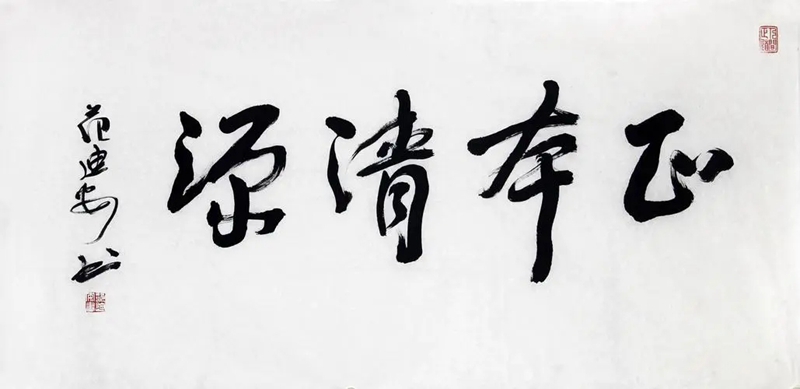 正本清源
范迪安书